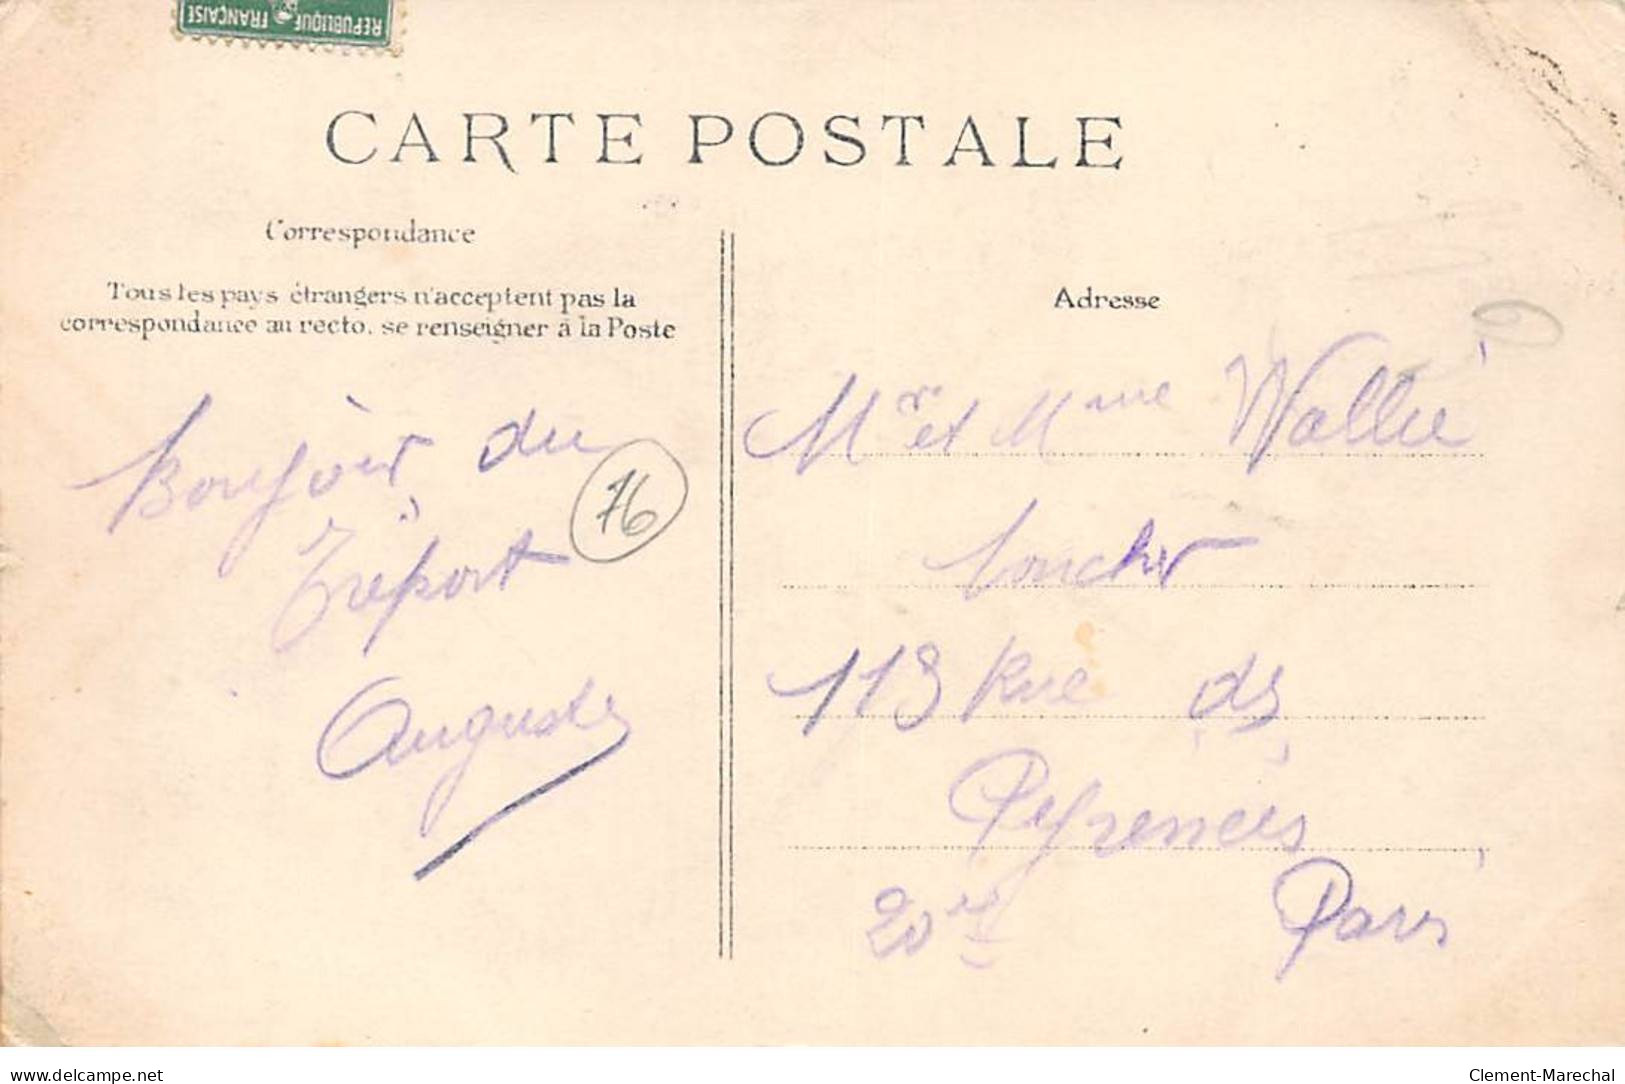 REPUBLIQUE FRANÇAISE
CARTE POSTALE
Correspondance
Tous les pays étrangers n'acceptent pas la
correspondance au recto, se renseigner à la Poste
Bonjour du
Tréport
Auguste
76
Adresse
Mr et Mme Wallié
113 Rue des
Pyrenées
20me Paris
www.delcampe.net
Clement-Marechal